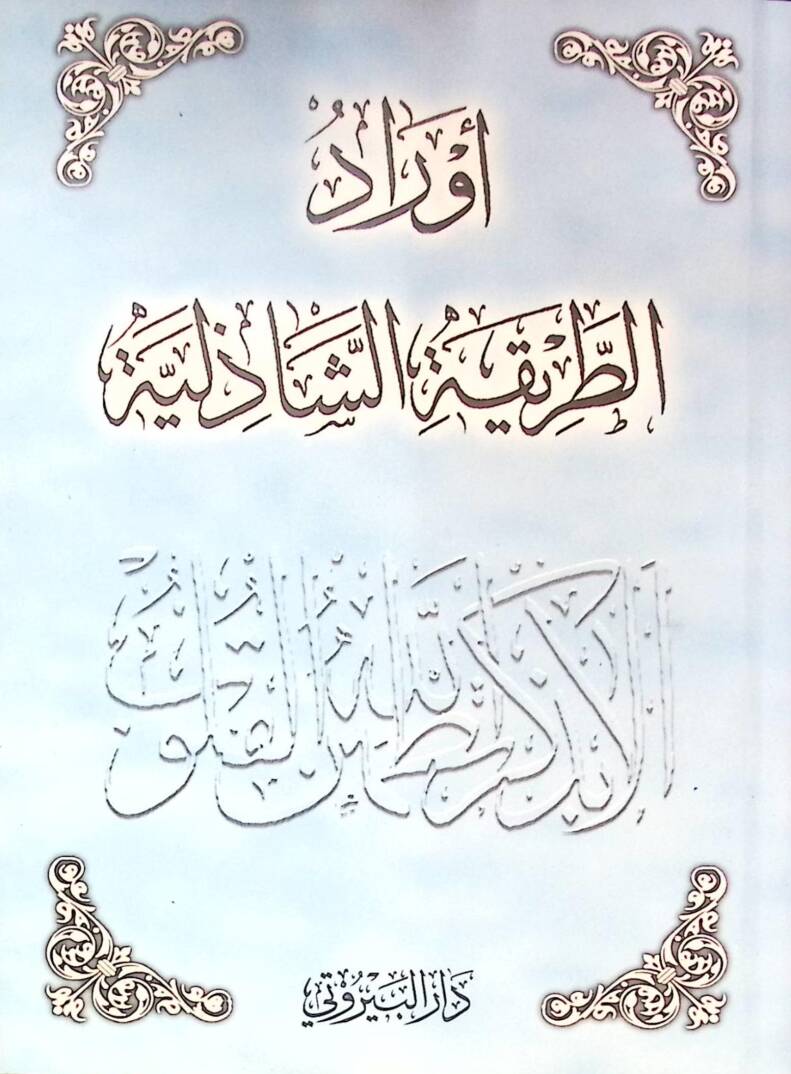 أَوْرَادُ
الطَّرِيْقَةِ الشَّاذِلِيَّةِ
ألا بذكر الله تطمئن القلوب
دَارُ الْبَيْرُوتِي